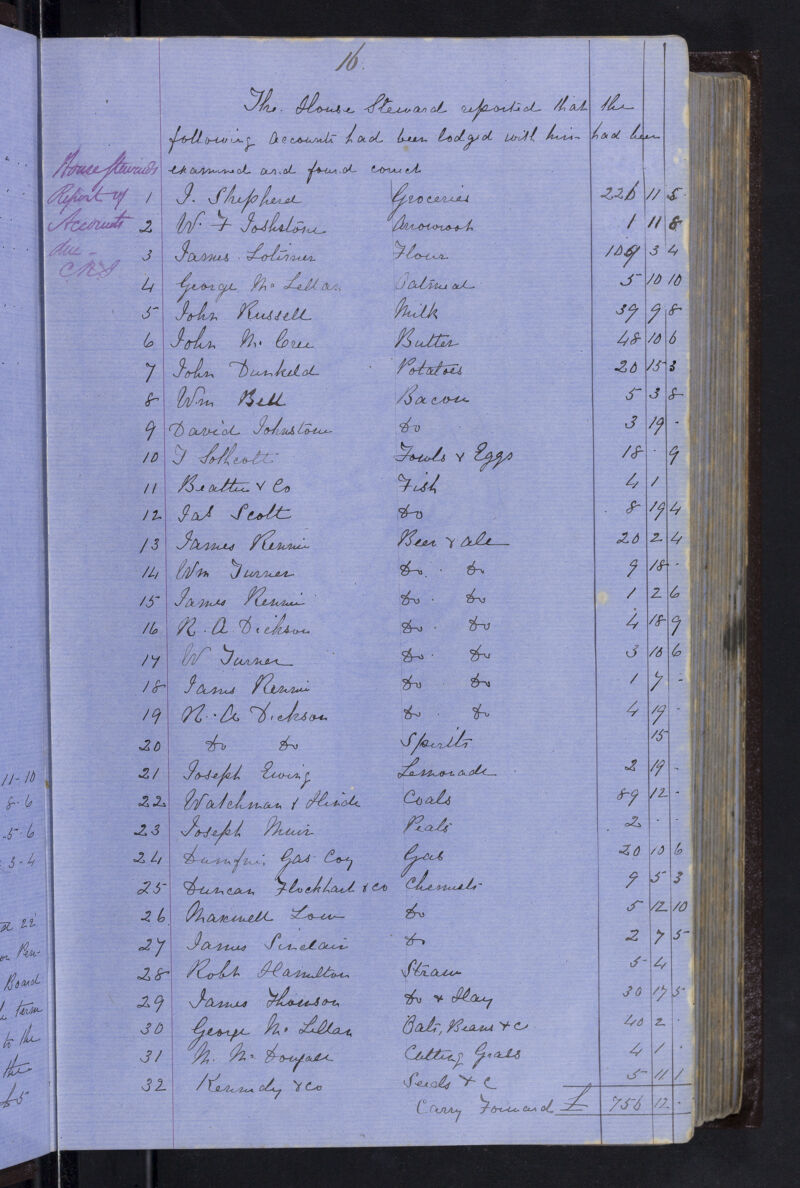 16.
The House Steward reported that the
following accounts had been lodged with him had been
examined and found correct
House Stewards
Report of
Accounts
due -
1 J. Shepherd Groceries 226 11 5
2 W. F Joshstone Arrowroot 1 11 8
3 James Lotimer Flour 109 3 4
4 George Mc Lellan Oatmeal 5 10 10
5 John Russell Milk 39 9 8
6 John Mc Cree Butter 48 10 6
7 John Dunkeld Potatoes 20 15 3
8 Wm Bell Bacon 5 3 8
9 David Johnstone Do 3 19 -
10 J Sothcott Fowls & Eggs 18 - 9
11 Beattie & Co Fish 4 1
12 Jas Scott Do 8 19 4
13 James Rennie Beer & ale 20 2 4
14 Wm Turner Do . Do 9 18 -
15 James Rennie Do . Do 1 2 6
16 R. A Dickson Do . Do 4 18 9
17 W Turner Do . Do 3 10 6
18 James Rennie Do . Do 1 7 -
19 R. A Dickson Do . Do 4 19 -
20 Do Do Spirits 15
21 Joseph Ewing Lemonade 2 19 -
22 Watchman & Hinde Coals 89 12 -
23 Joseph Muir Peats 2 - -
24 Dumfries Gas Coy Gas 20 10 6
25 Duncan Flockhart & co Chemicals 9 5 3
26 Maxwell Low Do 5 12 10
27 James Sinclair Do 2 7 5
28 Robt Hamilton Straw 5 4
29 James Thomson Do & Hay 30 17 5
30 George Mc Lellan Oats, Beans & c 40 2 -
31 M. Mc Dougall Cutting Grass 4 1 -
32 Kennedy & co Seeds & C 5 11 1
Carry Forward £ 756 12 -
11-10
8-6
-5-6
3-4
22
Board
term
to the
the
£5